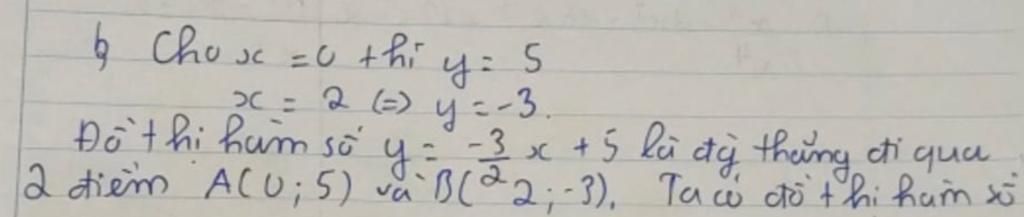 b, Cho x = 0 thì y = 5
x = 2 (=) y = -3.
Đồ thị hàm số y = -3/2 x + 5 là đg thẳng đi qua
2 điểm A(0; 5) và B(2; -3). Ta có đồ thị hàm số